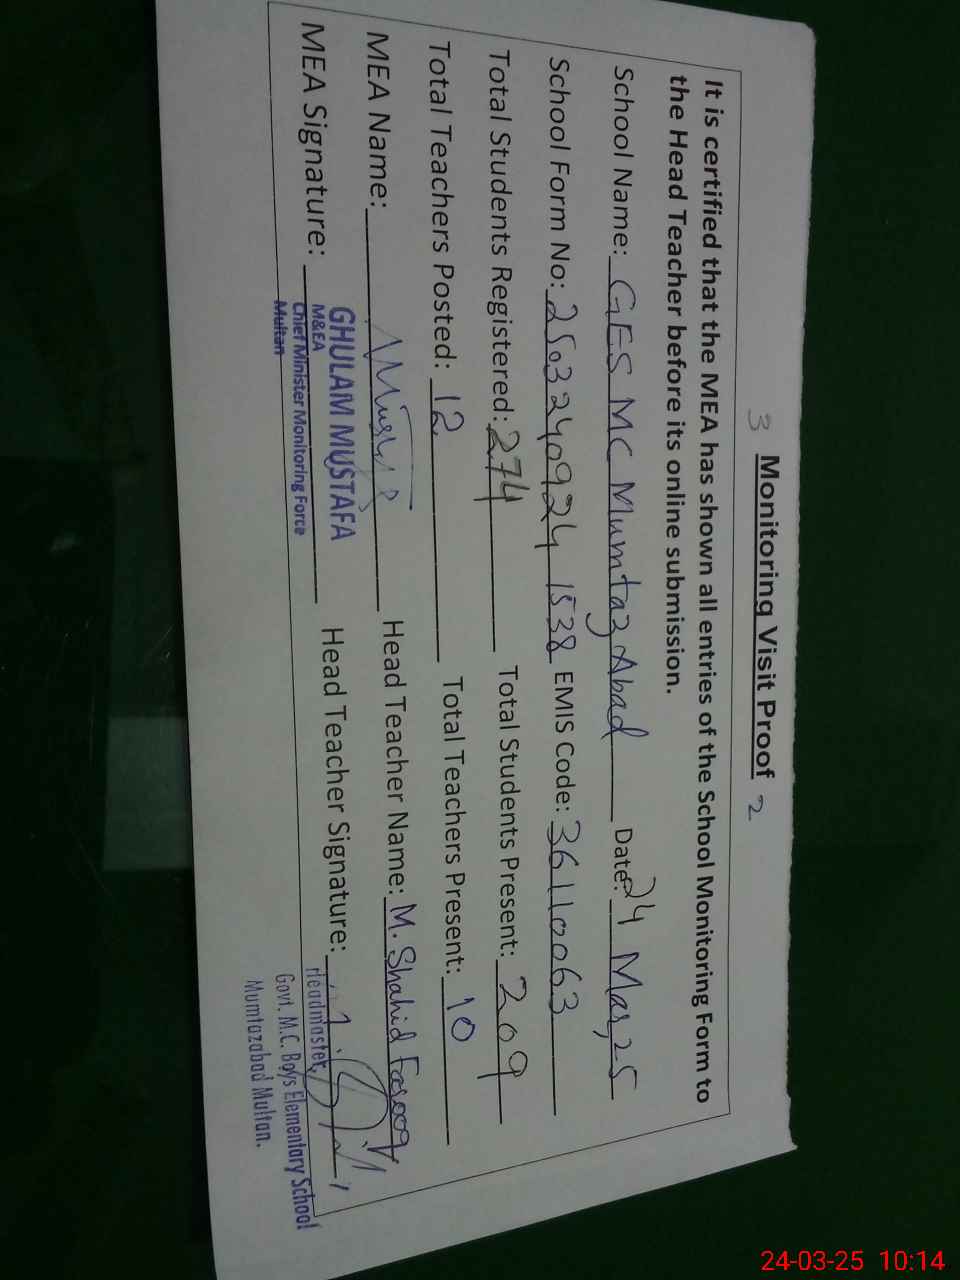 3 Monitoring Visit Proof 2
It is certified that the MEA has shown all entries of the School Monitoring Form to
the Head Teacher before its online submission.
School Name: GES MC Mumtaz Abad Date: 24 Mar, 25
School Form No: 25032409241538 EMIS Code: 36110063
Total Students Registered: 274 Total Students Present: 209
Total Teachers Posted: 12 Total Teachers Present: 10
MEA Name: Head Teacher Name: M. Shahid Farooq
MEA Signature: Head Teacher Signature:
GHULAM MUSTAFA
M&EA
Chief Minister Monitoring Force
Multan
Headmaster,
Govt. M.C. Boys Elementary School
Mumtazabad Multan.
24-03-25 10:14